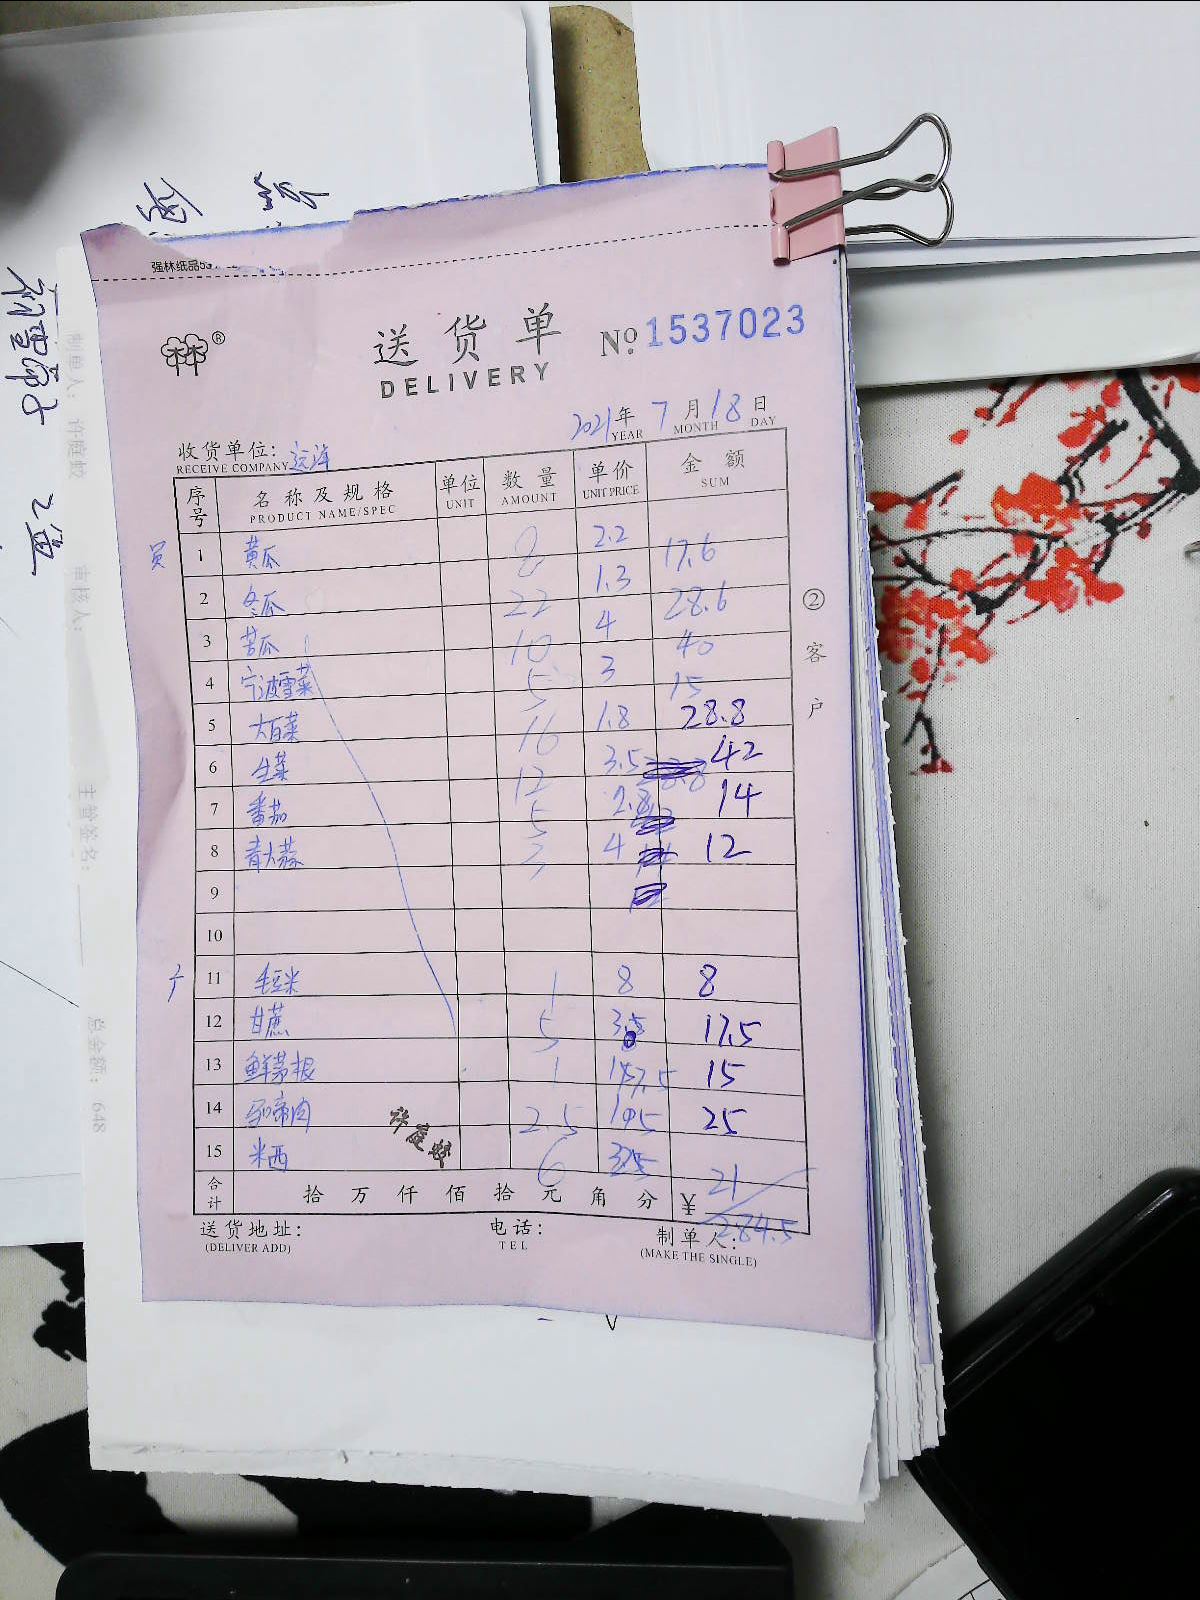 强林纸品
送货单 No. 1537023
DELIVERY
2021年 7月 18日
YEAR MONTH DAY
收货单位: 远洋
RECEIVE COMPANY
序号 名称及规格 单位 数量 单价 金额
PRODUCT NAME/SPEC UNIT AMOUNT UNIT PRICE SUM
员 1 黄瓜 8 2.2 17.6
2 冬瓜 22 1.3 28.6
3 苦瓜 10 4 40
4 宁波雪菜 5 3 15
5 大白菜 16 1.8 28.8
6 生菜 12 3.5 42
7 番茄 5 2.8 14
8 青大蒜 3 4 12
9
10
11 毛豆米 1 8 8
12 甘蔗 5 3.5 17.5
13 鲜茅根 1 15 15
14 马蹄肉 2.5 10 25
15 米西 6 3.5 21
许庭蛟
合计 拾 万 仟 佰 拾 元 角 分 ¥ 284.5
送货地址: 电话: 制单人:
(DELIVER ADD) TEL (MAKE THE SINGLE)
② 客户
制单人: 许庭蛟
审核人:
主管签名:
总金额: 648